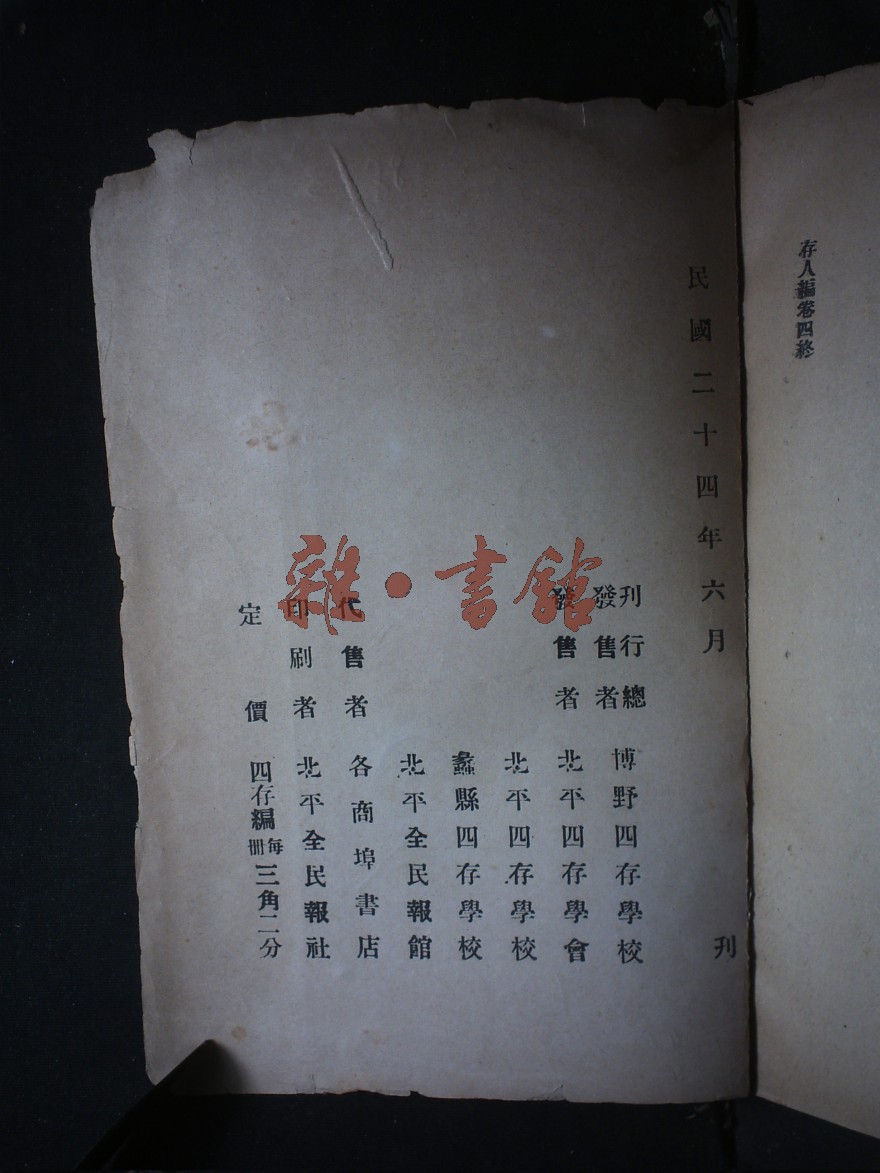 存人編卷四終
民國二十四年六月 刊
刊行總發售者 博野四存學校
發售者 北平四存學會
北平四存學校
蠡縣四存學校
北平全民報館
代售者 各商埠書店
印刷者 北平全民報社
定價 四存編每冊三角二分
雜·書館